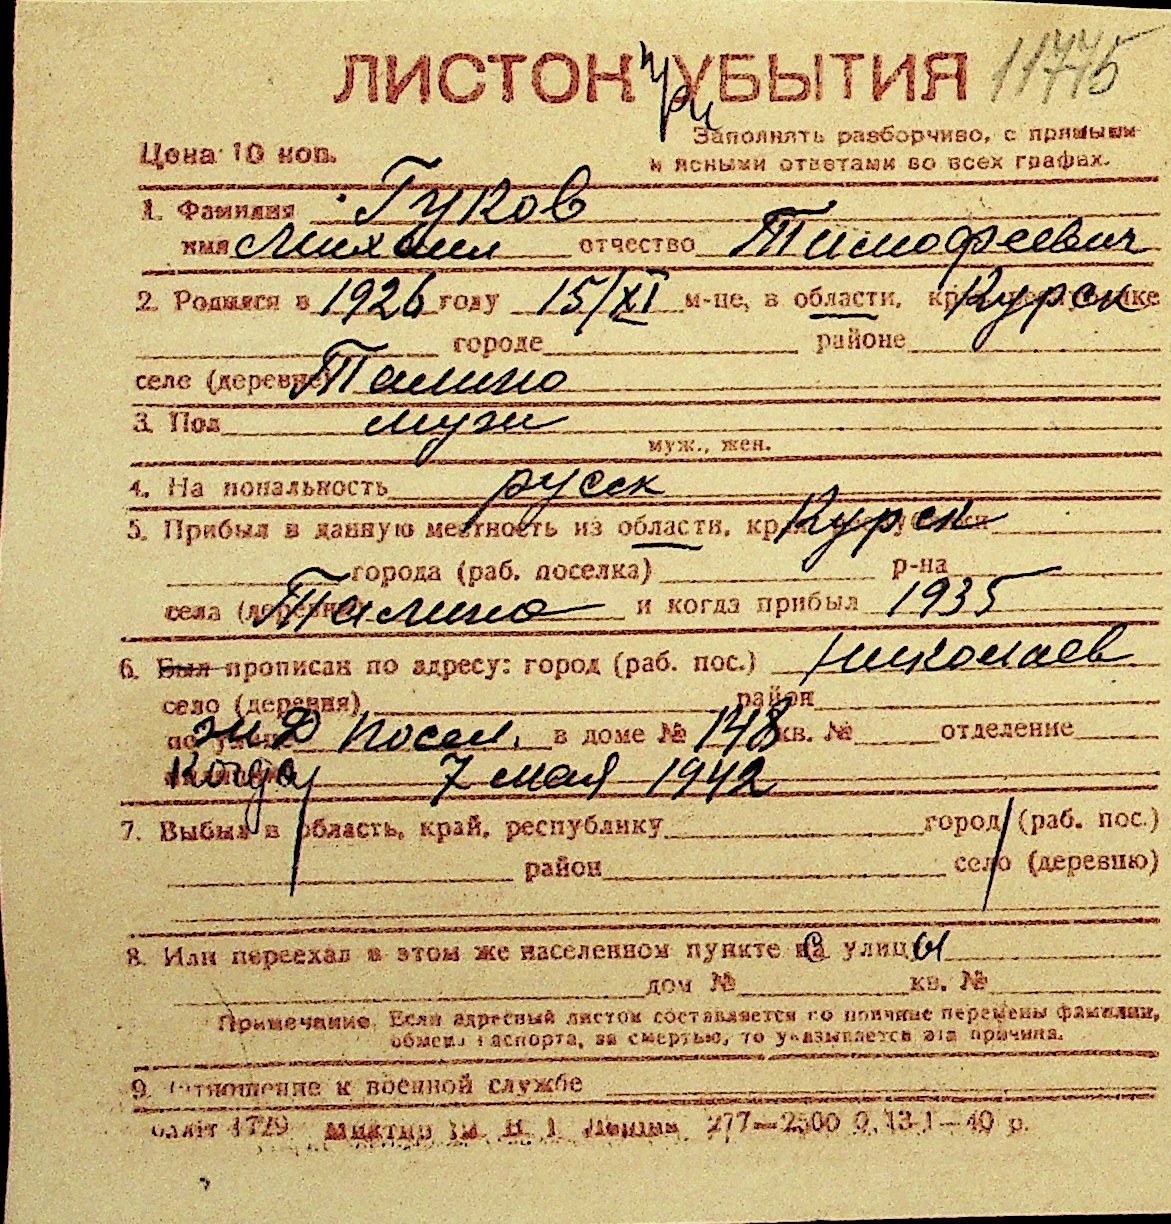 ЛИСТОК при УБЫТИЯ 11775
Цена 10 коп.
Заполнять разборчиво, с прямыми
и ясными ответами во всех графах.
1. Фамилия Гуков
имя Михаил отчество Тимофеевич
2. Родился в 1926 году 15/XI м-це, в области, Курск
городе районе
селе (деревне) Талино
3. Пол муж
муж., жен.
4. Национальность русск
5. Прибыл в данную местность из области, Курск
города (раб. поселка) р-на
села (деревни) Талино и когда прибыл 1935
6. Был прописан по адресу: город (раб. пос.) Николаев
село (деревня) район
по улице жд посел. в доме № 148 кв. № отделение
Когда 7 мая 1942
7. Выбыл в область, край, республику город (раб. пос.)
район село (деревню)
8. Или переехал в этом же населенном пункте с улицы
дом № кв. №
Примечание. Если адресный листок составляется по причине перемены фамилии,
обмена паспорта, за смертью, то указывается эта причина.
9. Отношение к военной службе
1729 277—2500 0. 13-I—40 р.